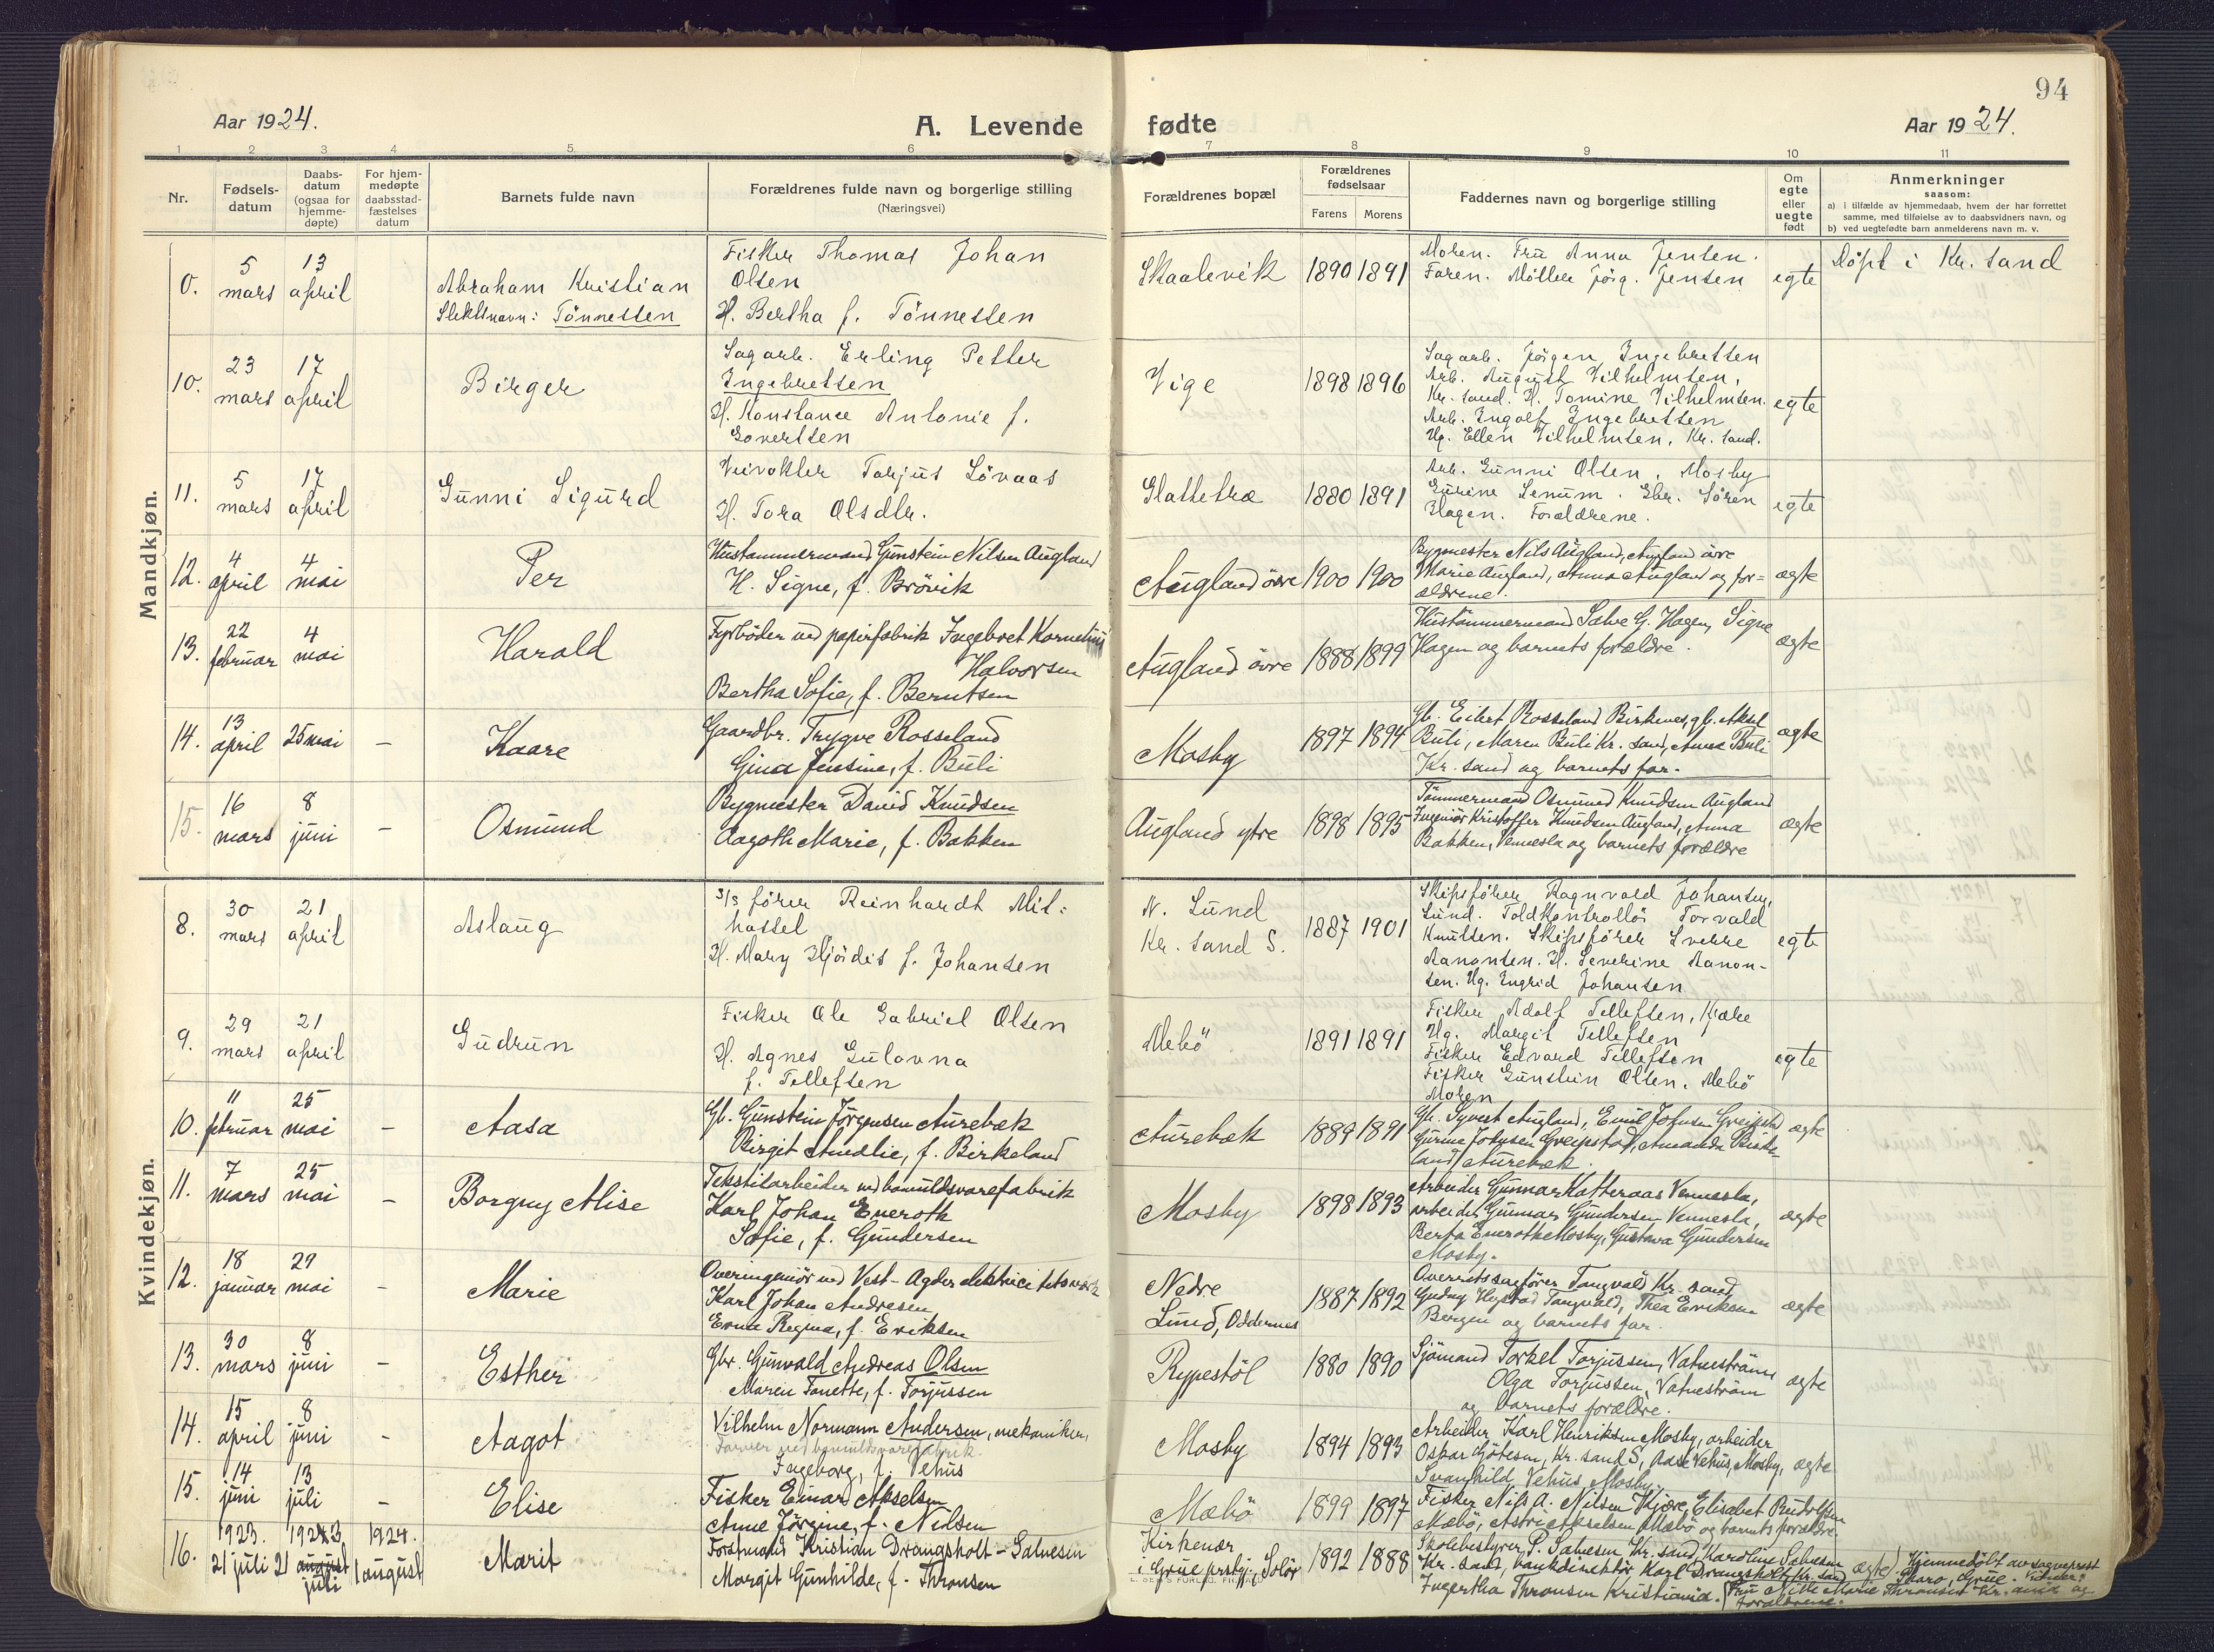 94
Aar 1924.
A. Levende fødte
Aar 1924.
1 2 3 4 5 6 7 8 9 10 11
Nr.
Fødsels-
datum
Daabs-
datum
(ogsaa for
hjemme-
døpte)
For hjem-
medøpte
daabsstad-
fæstelses
datum
Barnets fulde navn
Forældrenes fulde navn og borgerlige stilling
(Næringsvei)
Forældrenes bopæl
Forældrenes
fødselsaar
Farens Morens
Faddernes navn og borgerlige stilling
Om
egte
eller
uegte
født
Anmerkninger
saasom:
a) i tilfælde av hjemmedaab, hvem der har forrettet
samme, med tilføielse av to daabsvidners navn, og
b) ved uegtefødte barn anmelderens navn m. v.
Mandkjøn.
0.
5 mars
13 april
Abraham Kristian
Slektsnavn: Tönnessen
Fisker Thomas Johan
Olsen
H. Bertha f. Tönnessen
Skaalevik
1890 1891
Moren. Fru Anna Jensen.
Faren. Möller Jörg. Jensen
egte
Döpt i Kr. sand
10.
23 mars
17 april
Birger
Sagarb. Erling Petter
Ingebretsen
H. Konstance Antonie f.
Govertsen
Vige
1898 1896
Sagarb. Jörgen Ingebretsen
Arb. August Vilhelmsen,
Kr. sand. H. Tomine Vilhelmsen.
Arb. Ingolf Ingebretsen
Ug. Ellen Vilhelmsen, Kr. sand.
egte
11.
5 mars
17 april
Gunni Sigurd
Veivokter Tarjus Lövaas
H. Tora Olsdtr.
Glattetræ
1880 1891
Arb. Gunni Olsen, Mosby
Gurine Senum. Gbr. Sören
Hagen. Forældrene.
egte
12.
4 april
4 mai
Per
Hustömmermand Gunstein Nilsen Augland
H. Signe, f. Brövik
Augland övre
1900 1900
Bygmester Nils Augland, Augland övre
Marie Augland, Anna Augland og for=
ældrene.
ægte
13.
22 februar
4 mai
Harald
Fyrböder ved papirfabrik Ingebret Kornelius
Halvorsen
Bertha Sofie, f. Berntsen
Augland övre
1888 1899
Hustömmermand Salve G. Hagen, Signe
Hagen og barnets forældre.
ægte
14.
13 april
25 mai
-
Kaare
Gaardbr. Trygve Rosseland
Gina Jensine, f. Buli
Mosby
1897 1894
Gb. Eilert Rosseland Birkenes, gb. Aksel
Buli, Maren Buli Kr. sand, Anna Buli
Kr. sand og barnets far.
ægte
15.
16 mars
8 juni
-
Osmund
Bygmester David Knudsen
Aagoth Marie, f. Bakken
Augland ytre
1898 1895
Tömmermand Osmund Knudsen Augland
Ingeniör Kristoffer Knudsen Augland, Anna
Bakken, Vennesla og barnets forældre
ægte
Kvindekjøn.
8.
30 mars
21 april
Aslaug
S/S förer Reinhardt Mit=
hassel
H. Mary Hjördis f. Johansen
N. Lund
Kr. sand S.
1887 1901
Skipsförer Ragnvald Johansen,
Lund. Toldkontrollör Torvald
Knutsen. Skipsförer Sverre
Aanonsen. H. Severine Aanon-
sen. Ug. Ingrid Johansen
egte
9.
29 mars
21 april
Gudrun
Fisker Ole Gabriel Olsen
H. Agnes Gulovna
f. Tellefsen
Mebö
1891 1891
Fisker Adolf Tellefsen, Kjære
Ug. Margit Tellefsen
Fisker Edvard Tellefsen
Fisker Gunstein Olsen, Mebö
Moren
egte
10.
11 februar
25 mai
-
Aasa
Gb. Gunstein Jörgensen Aurebæk
Birgit Amalie, f. Birkeland
Aurebæk
1889 1891
Gb. Syvert Augland, Emil Johnsen Greipstad
Gurine Johnsen Greipstad, Amanda Birke
land, Aurebæk.
ægte
11.
7 mars
25 mai
-
Borgny Alise
Tekstilarbeider ved bomuldsvarefabrik
Karl Johan Eneroth
Sofie, f. Gundersen
Mosby
1898 1893
Arbeider Gunnar Katteraas Vennesla,
arbeider Gunnar Gundersen Vennesla,
Berta Eneroth Mosby, Gustava Gundersen
Mosby.
ægte
12.
18 januar
29 mai
-
Marie
Overingeniör ved Vest-Agder elektricitetsverk
Karl Johan Andresen
Erna Regina, f. Eriksen
Nedre
Lund, Oddernes
1887 1892
Overretssagförer Tangvald Kr. sand,
Gudny Tangvald, Thea Eriksen
Bergen og barnets far.
ægte
13.
30 mars
8 juni
-
Esther
Gbr. Gunvald Andreas Olsen
Maren Tonette, f. Torjussen
Rypestöl
1880 1890
Sjömand Torkel Torjussen, Vatneström
Olga Torjussen, Vatneström
og barnets forældre.
ægte
14.
15 april
8 juni
-
Aagot
Vilhelm Normann Andersen, mekaniker,
ved bomuldsvarefabrik.
Ingeborg, f. Vehus
Mosby
1894 1893
Arbeider Karl Henriksen Mosby, arbeider
Oskar, Kr. sand S, Aase Vehus, Mosby,
Svanhild Vehus Mosby.
ægte
15.
14 juni
13 juli
-
Elise
Fisker Einar Akselsen
Anne Jörgine, f. Nilsen
Mæbö
1899 1897
Fisker Nils A. Nilsen Kjære, Elisabet Rudolfsen
Mæbö, Astri Akselsen Mæbö og barnets forældre.
16.
1923. 21 juli
1923 21 august juli
1924. 1 august
Marit
Forstmand Kristian Drangsholt-Salvesen
Margit Gunhilde, f. Thronsen
Kirkenær
i Grue prstgj., Solör
1892 1888
Skolebestyrer P. Salvesen Kr. sand, Karoline Salvesen
Kr. sand, bankdirektör Karl Drangsholt, Kr. sand
Ingertha Thronsen Kristiania.
ægte
Hjemmedöbt av sogneprest
Grue. Vidner:
Fru Marie Thronsen Kr.ania og
forældrene.